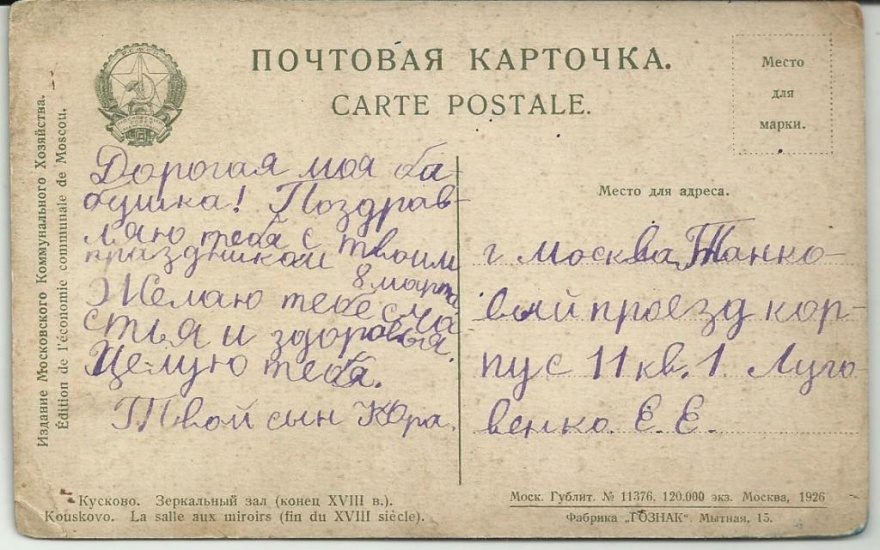 ПОЧТОВАЯ КАРТОЧКА.
CARTE POSTALE.
Место
для
марки.
Издание Московского Коммунального Хозяйства.
Édition de l'économie communale de Moscou.
Дорогая моя ба-
бушка! Поздрав-
ляю тебя с твоим
праздником
8 марта
Желаю тебе сча
стья и здоровья.
Целую тебя.
Твой сын Юра.
Место для адреса.
г Москва, Танко-
вый проезд кор-
пус 11 кв. 1 Луго
венко. Е. Е.
Кусково. Зеркальный зал (конец XVIII в.).
Kouskovo. La salle aux miroirs (fin du XVIII siècle).
Моск. Гублит. № 11376. 120.000 экз. Москва, 1926
Фабрика „ГОЗНАК“. Мытная, 15.